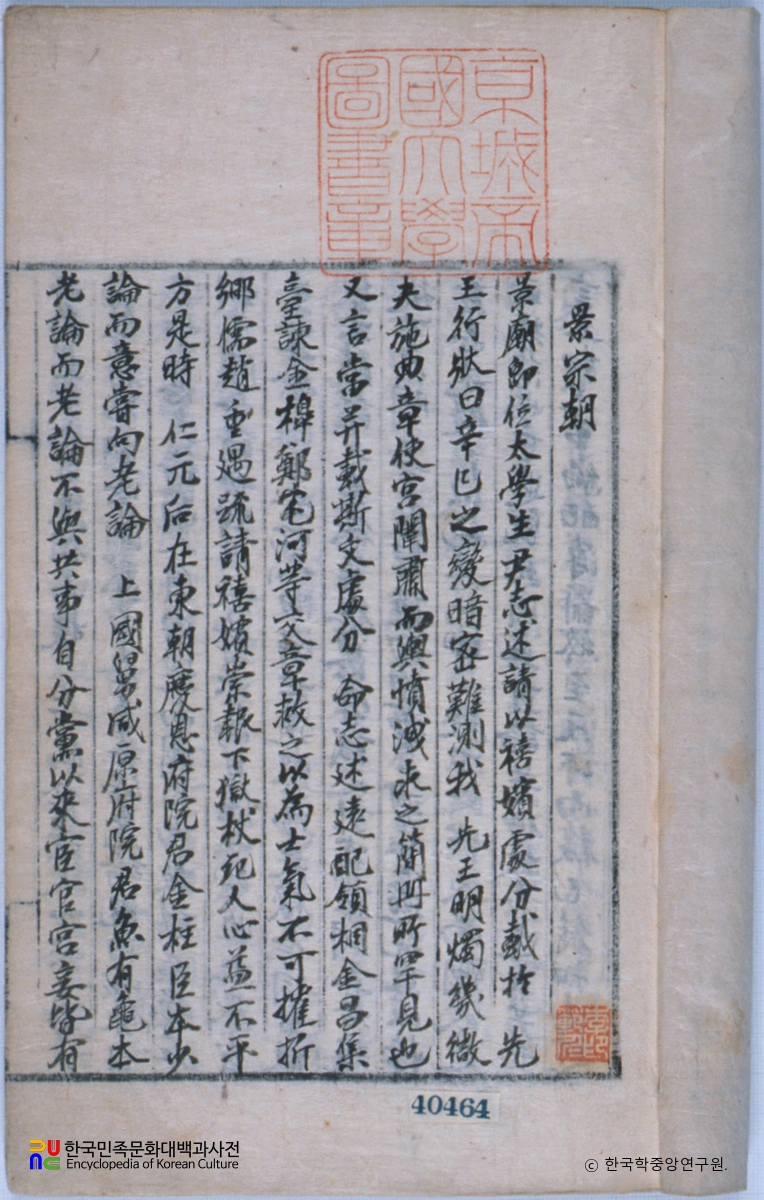 京城帝
國大學
圖書章
景宗朝
景廟即位太學生尹志述請以禧嬪處分載於 先
王行狀曰辛巳之變暗密難測我 先王明燭幾微
夫施典章使宮闈肅而輿憤洩求之簡冊所罕見也
又言當并載斯文處分 命志述遠配領相金昌集
臺諫金樺鄭宅河等交章救之以為士氣不可摧折
鄉儒趙重遇疏請禧嬪崇報下獄杖死人心益不平
方是時 仁元后在東朝慶恩府院君金柱臣本少
論而意嘗向老論 上國舅咸原府院君魚有龜本
老論而老論不與共事自分黨以來宦官宮妾皆有
40464
한국민족문화대백과사전
Encyclopedia of Korean Culture
ⓒ 한국학중앙연구원.